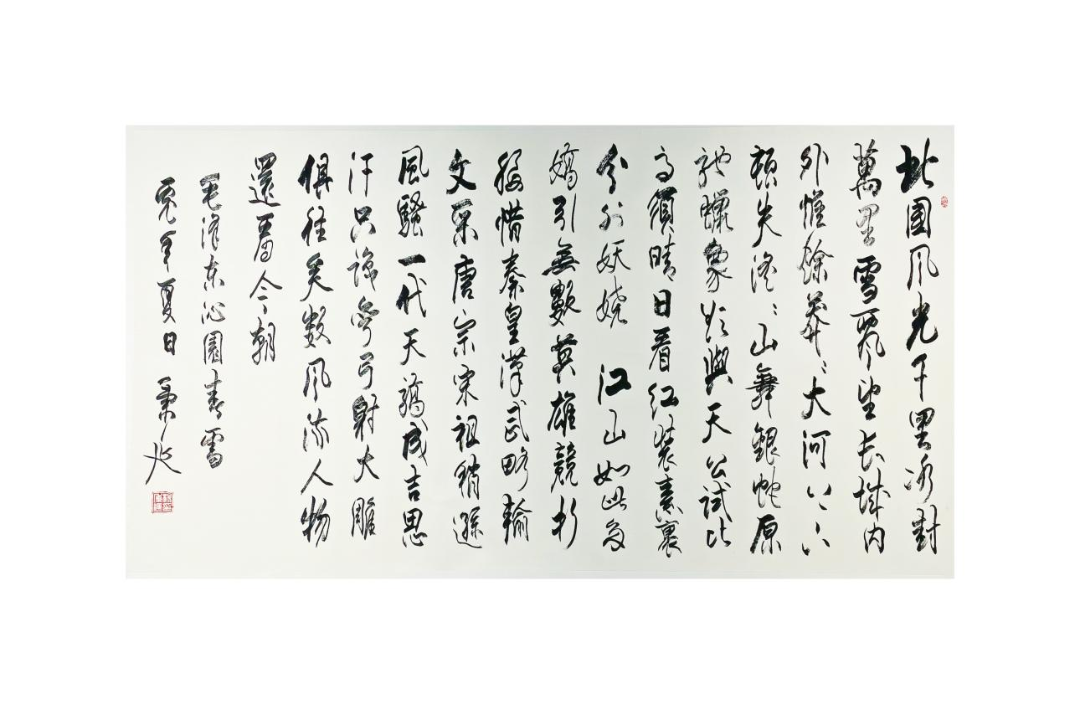 北國风光千里冰封
萬里雪飄望長城内
外惟餘莽々大河上下
頓失滔々山舞銀蛇原
馳蠟象欲與天公試比
高須晴日看红装素裹
分外妖娆 江山如此多
嬌引無數英雄競折
腰惜秦皇漢武略輸
文采唐宗宋祖稍遜
風騷一代天驕成吉思
汗只識彎弓射大雕
俱往矣数风流人物
還看今朝
毛泽东沁園春雪
年夏日